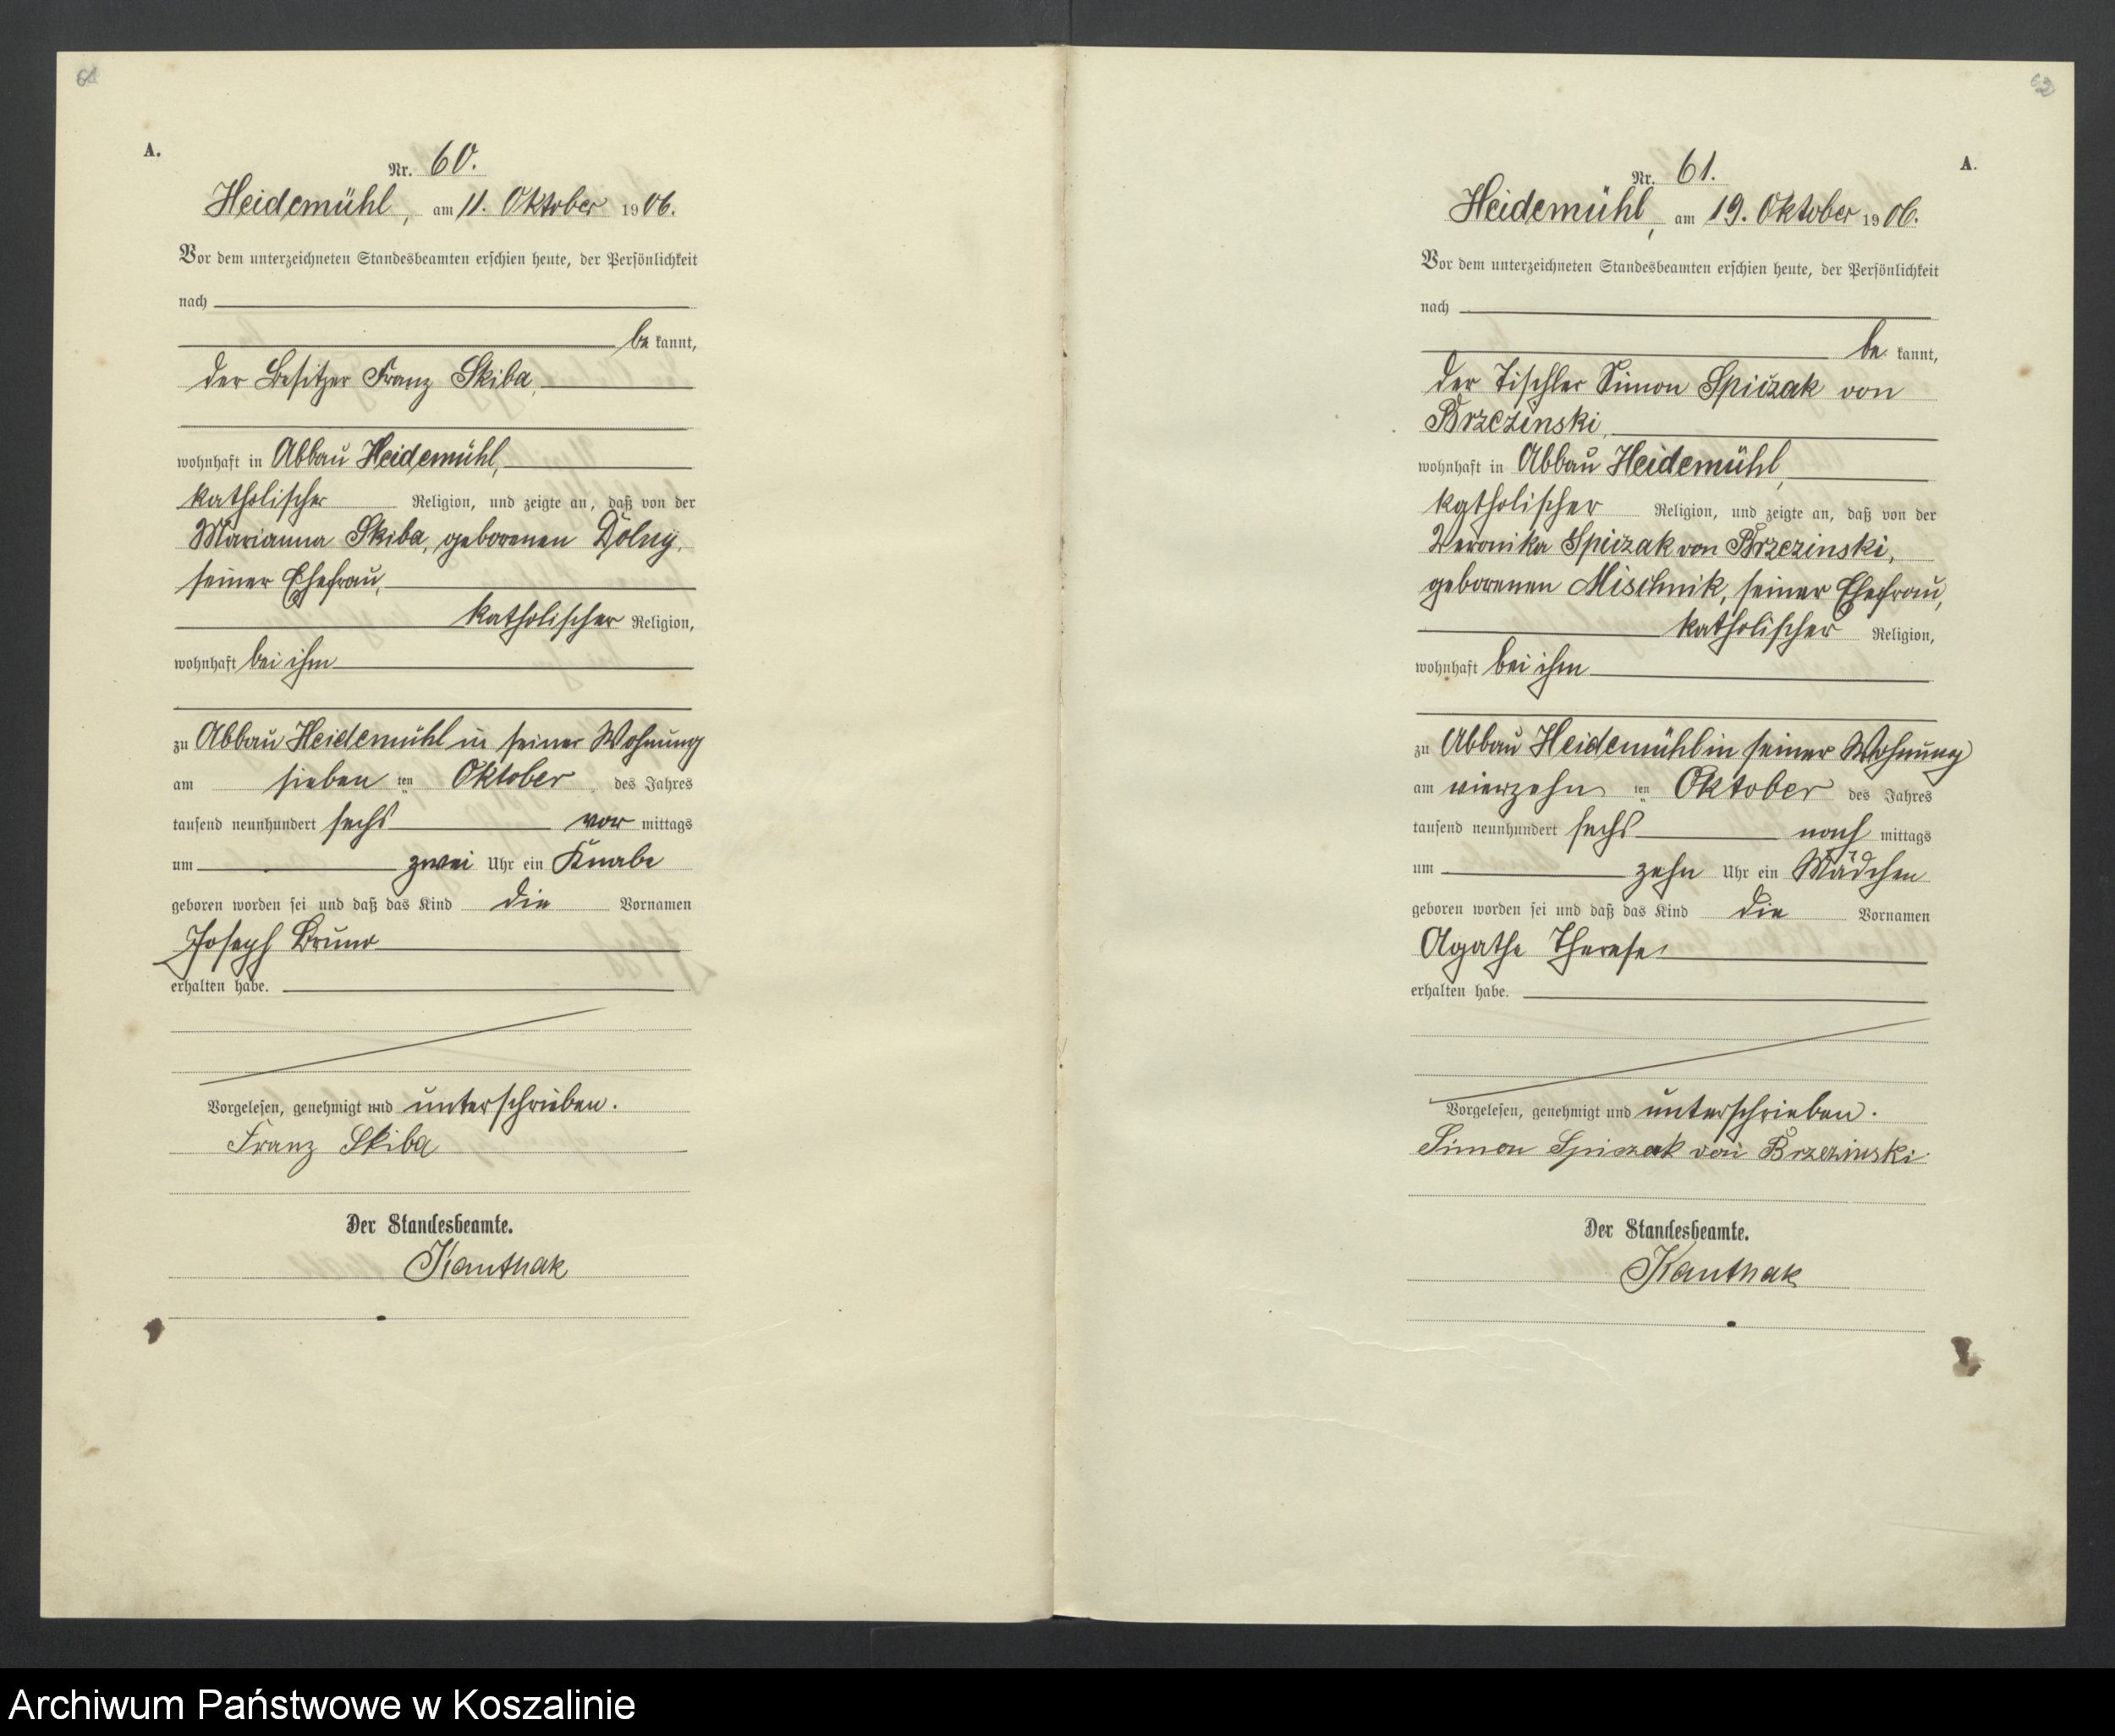 61
A.
Nr. 60.
Heidemühl, am 11. Oktober 1906.
Vor dem unterzeichneten Standesbeamten erschien heute, der Persönlichkeit
nach
be kannt,
der Besitzer Franz Skiba,
wohnhaft in Abbau Heidemühl,
katholischer Religion, und zeigte an, daß von der
Marianna Skiba, geborenen Dolny,
seiner Ehefrau,
katholischer Religion,
wohnhaft bei ihm
zu Abbau Heidemühl in seiner Wohnung
am sieben ten Oktober des Jahres
tausend neunhundert sechs vor mittags
um zwei Uhr ein Knabe
geboren worden sei und daß das Kind die Vornamen
Joseph Bruno
erhalten habe.
Vorgelesen, genehmigt und unterschrieben.
Franz Skiba
Der Standesbeamte.
Kanthak
62
A.
Nr. 61.
Heidemühl, am 19. Oktober 1906.
Vor dem unterzeichneten Standesbeamten erschien heute, der Persönlichkeit
nach
be kannt,
der Tischler Simon Spiczak von
Brzezinski,
wohnhaft in Abbau Heidemühl,
katholischer Religion, und zeigte an, daß von der
Veronika Spiczak von Brzezinski,
geborenen Mischnik, seiner Ehefrau,
katholischer Religion,
wohnhaft bei ihm
zu Abbau Heidemühl in seiner Wohnung
am vierzehn ten Oktober des Jahres
tausend neunhundert sechs nach mittags
um zehn Uhr ein Mädchen
geboren worden sei und daß das Kind die Vornamen
Agathe Therese
erhalten habe.
Vorgelesen, genehmigt und unterschrieben.
Simon Spiczak von Brzezinski
Der Standesbeamte.
Kanthak
Archiwum Państwowe w Koszalinie